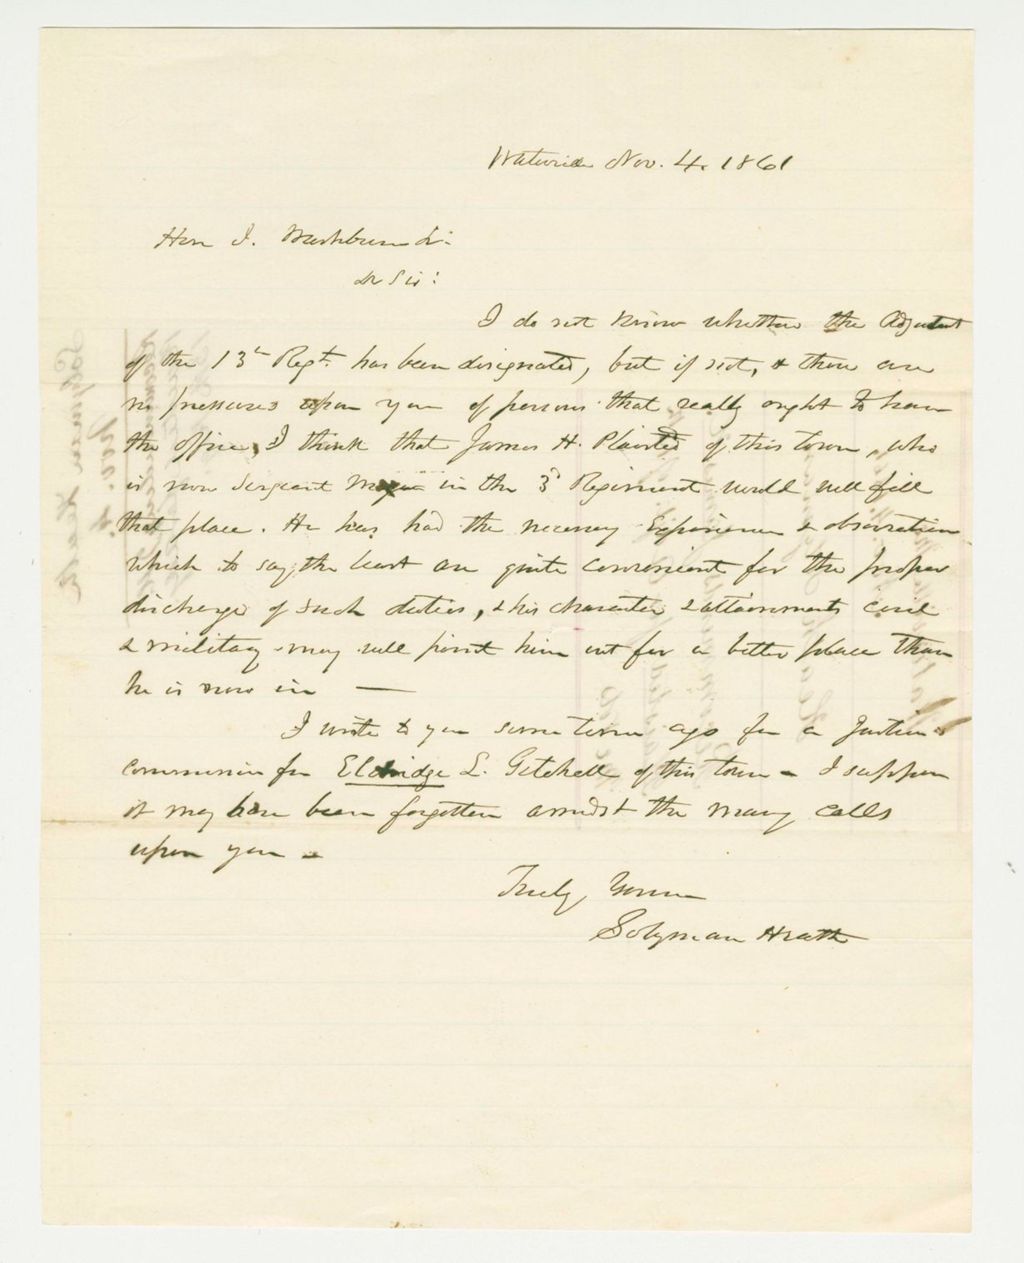 Waterville Nov. 4. 1861
Hon I. Washburn Jr:
Dr Sir:
I do not know whether the Adjutant
of the 13th Regt. has been designated, but if not, & there are
no pressures upon you of persons that really ought to have
the office, I think that James H. Plaisted of this town, who
is now Sergeant Major in the 3d Regiment would well fill
that place. He has had the necessary experience & observation
which to say the least are quite convenient for the proper
discharge of such duties, & his character & attainments civil
& military may well point him out for a better place than
he is now in —
I wrote to you some time ago for a Justices
commission for Eldridge L. Getchell of this town - I suppose
it may have been forgotten amidst the many calls
upon you -
Truly Yours
Solyman Heath